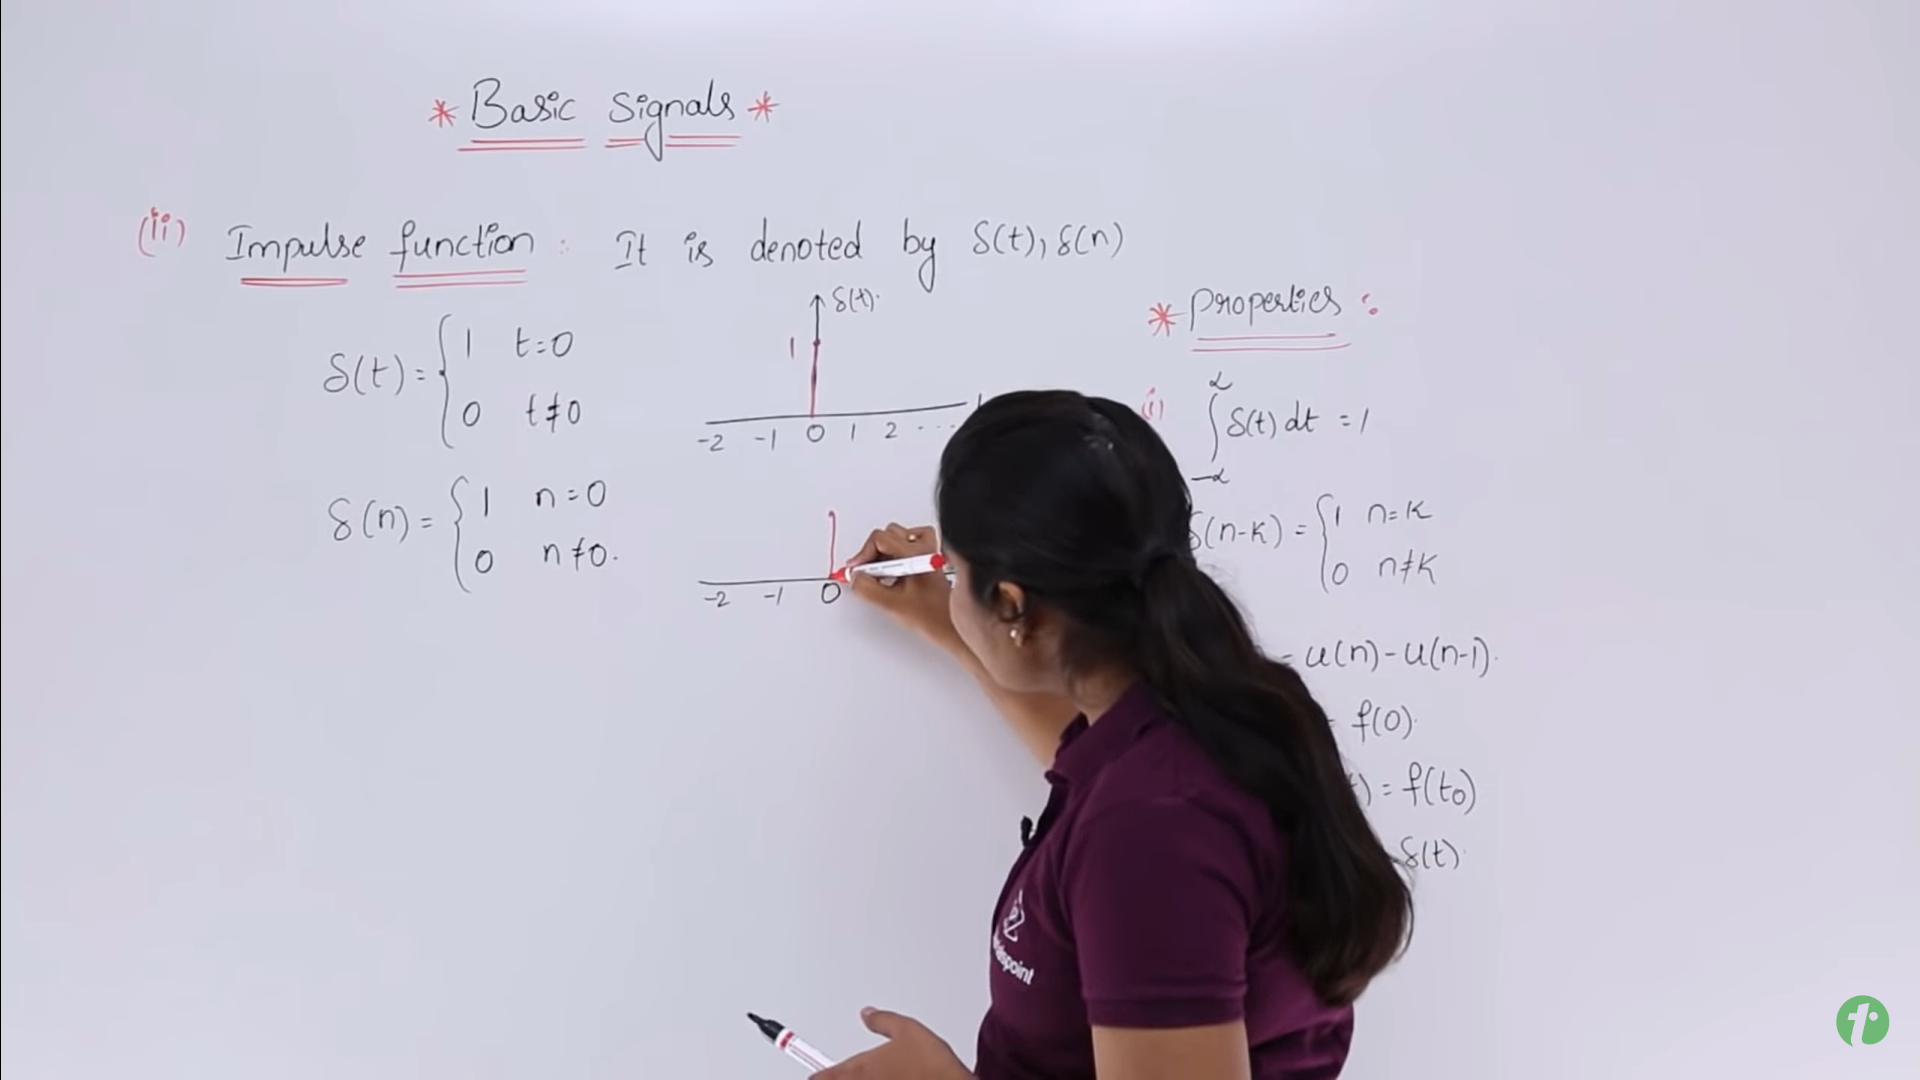 * Basic Signals *
(ii) Impulse function : It is denoted by δ(t), δ(n)
δ(t) = { 1 t=0
0 t≠0
δ(n) = { 1 n=0
0 n≠0.
δ(t).
1
-2 -1 0 1 2 ...
-2 -1 0
* Properties :
(i) ∫ δ(t) dt = 1
∝
-∝
δ(n-k) = { 1 n=k
0 n≠k
= u(n) - u(n-1).
= f(0).
t) = f(t0)
δ(t).